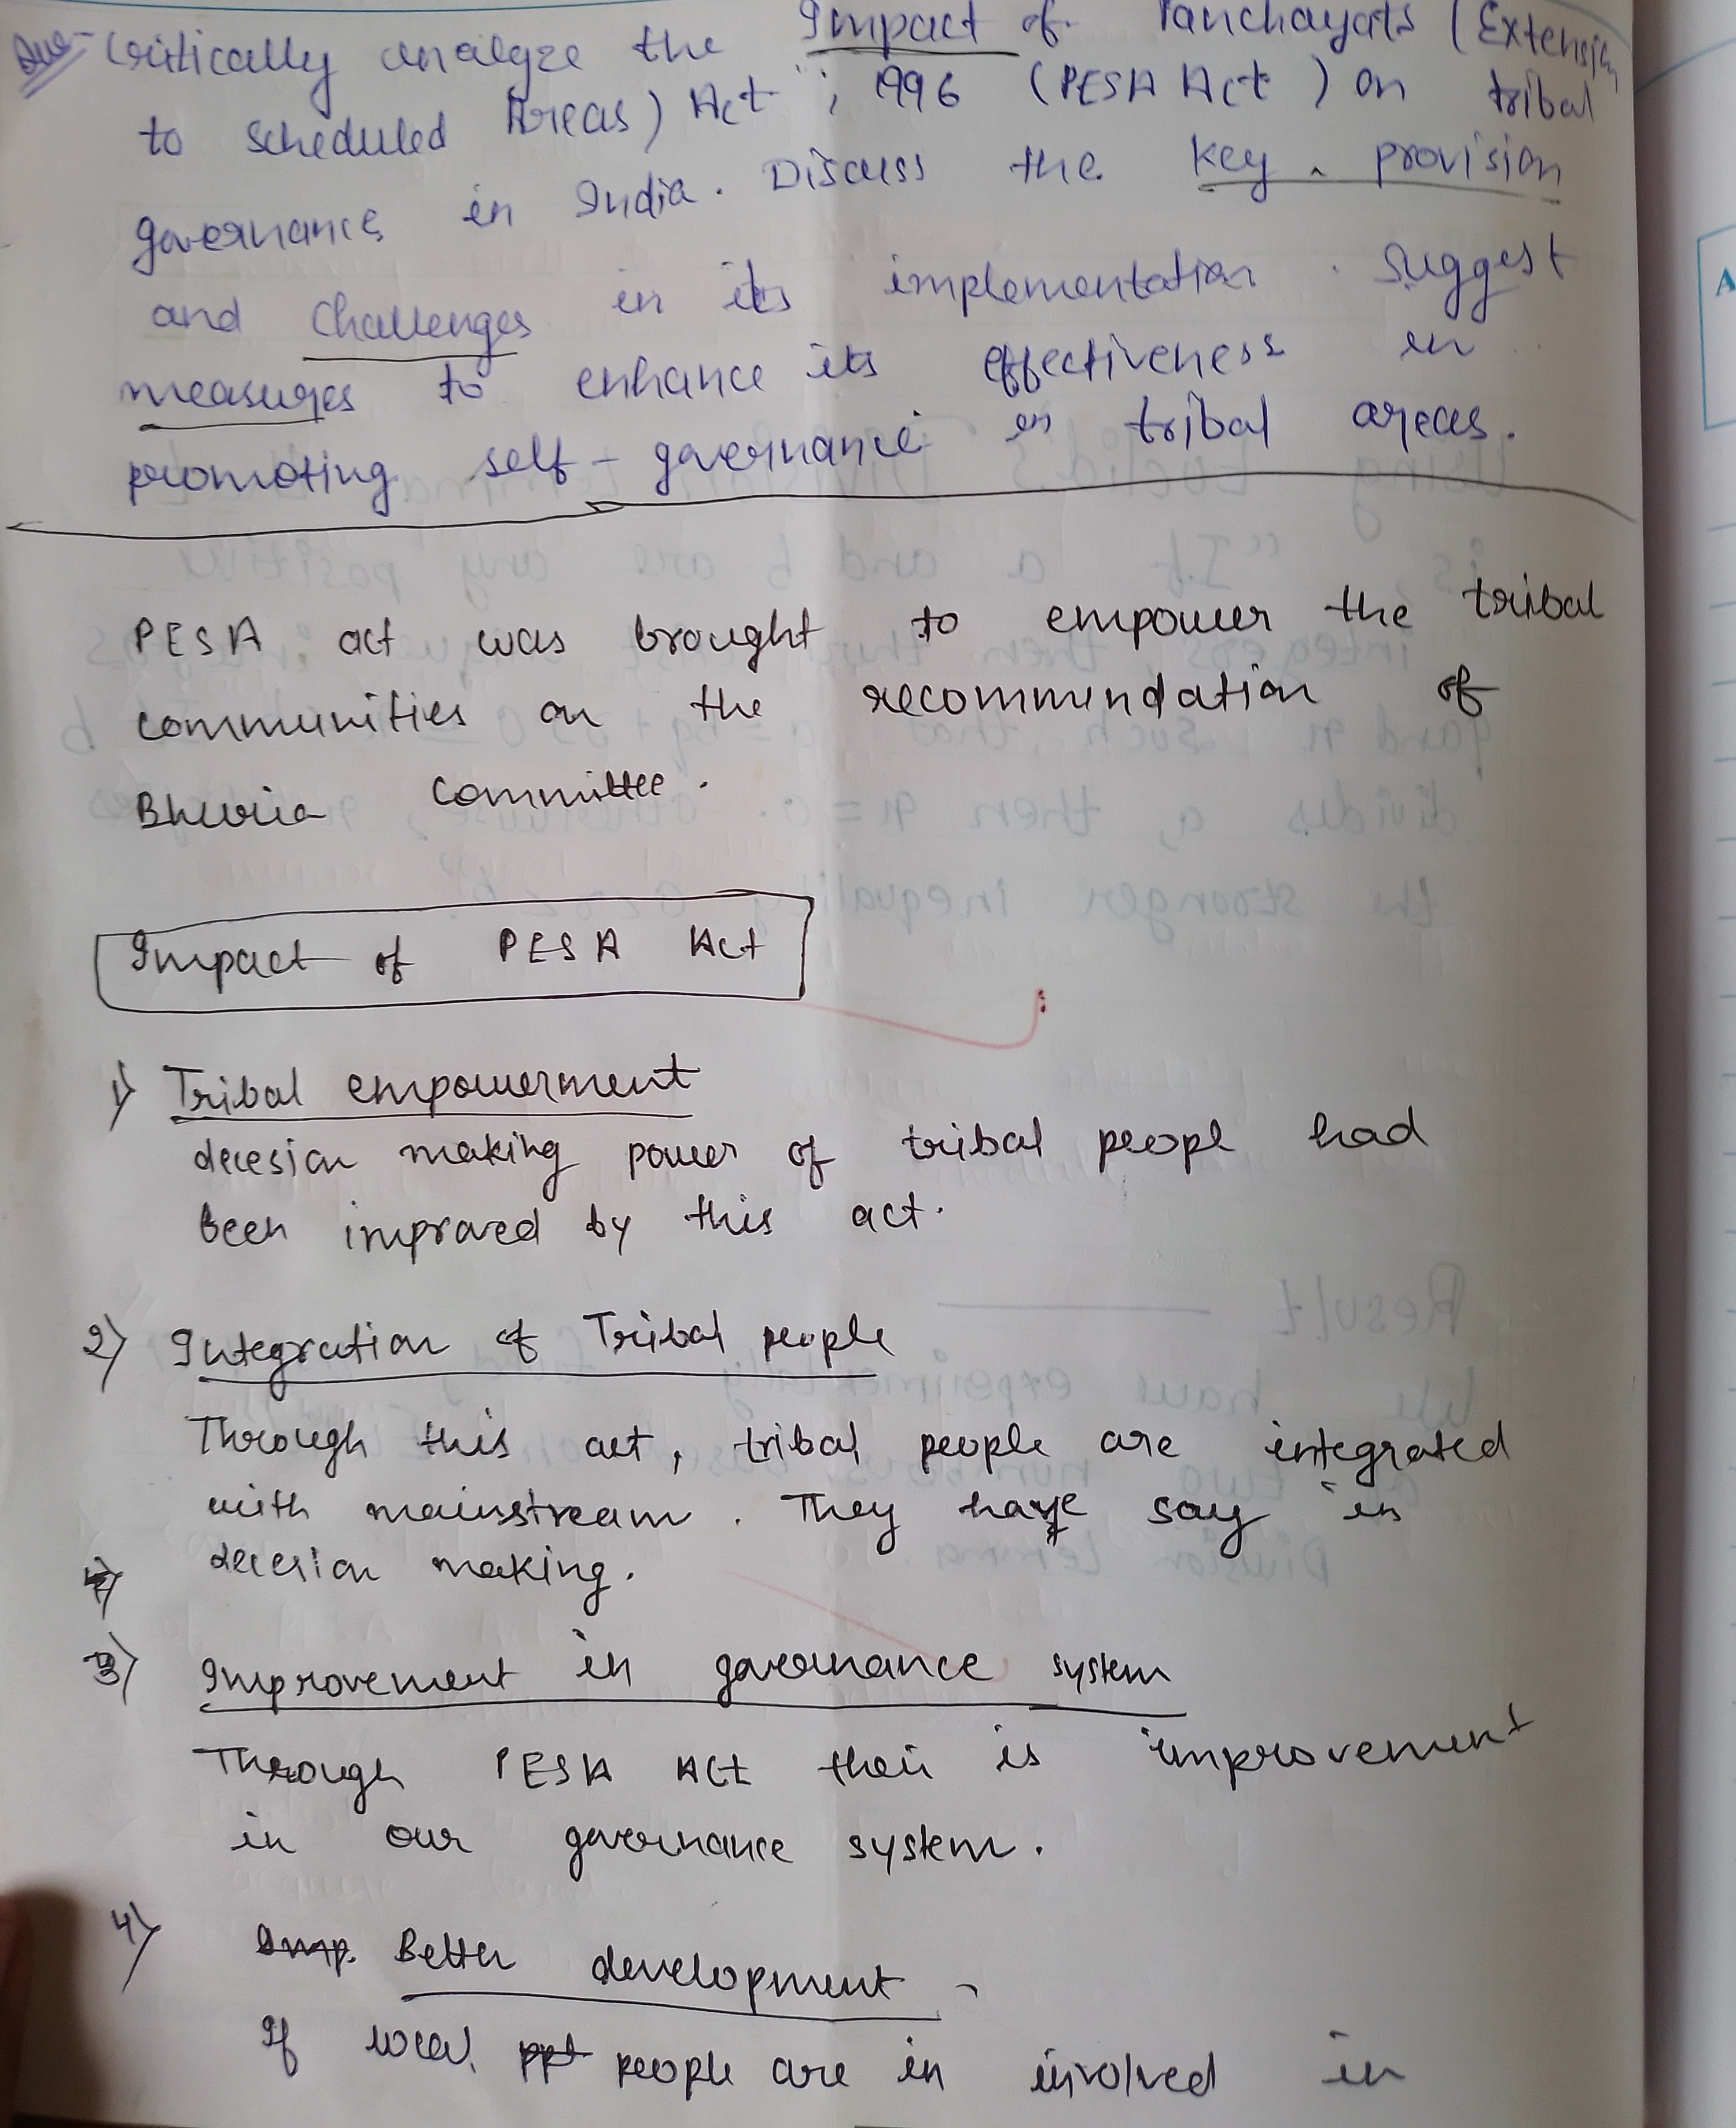 Que- Critically analyze the Impact of Panchayats (Extension
to scheduled Areas) Act, 1996 (PESA Act) on tribal
governance in India. Discuss the key provision
and challenges in its implementation. Suggest
measures to enhance its effectiveness in
promoting self-governance in tribal areas.
PESA act was brought to empower the tribal
communities on the recommendation of
Bhuria Committee.
Impact of PESA Act
1) Tribal empowerment
decesion making power of tribal peopl had
been improved by this act.
2) Integration of Tribal people
Through this act, tribal people are integrated
with mainstream. They have say in
decesion making.
3) Improvement in governance system
Through PESA Act their is improvement
in our governance system.
4) Imp. Better development
If local ppt people are in involved in